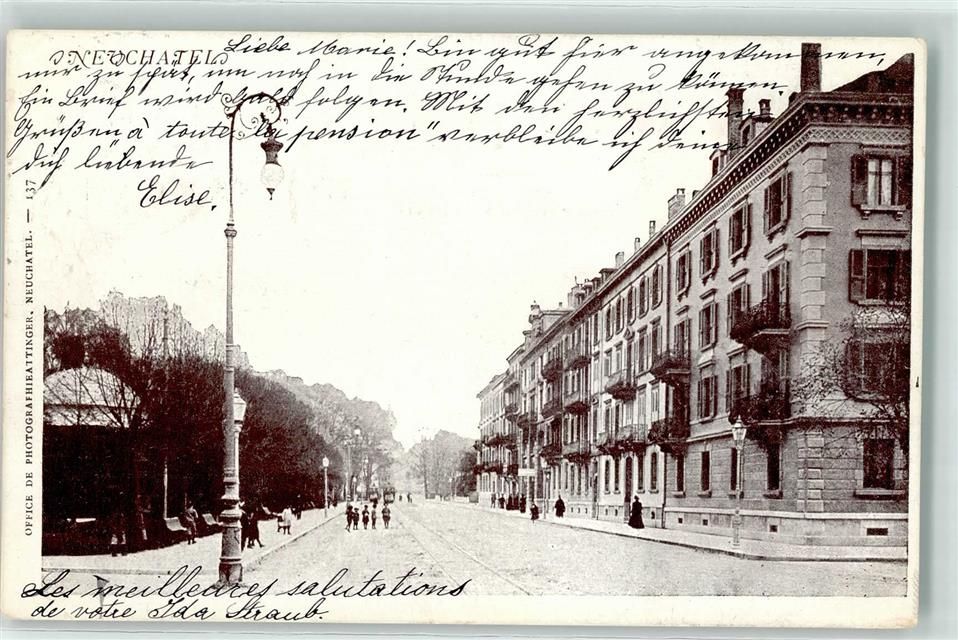 NEUCHATEL
Liebe Marie! Bin gut hier angekommen,
nur zu spät, um noch in die Stunde gehen zu können.
Ein Brief wird bald folgen. Mit den herzlichsten
Grüßen à toute la pension" verbleibe ich deine
dich liebende
Elise.
OFFICE DE PHOTOGRAPHIE ATTINGER, NEUCHATEL. — 137
Les meilleures salutations
de votre Ida Straub.